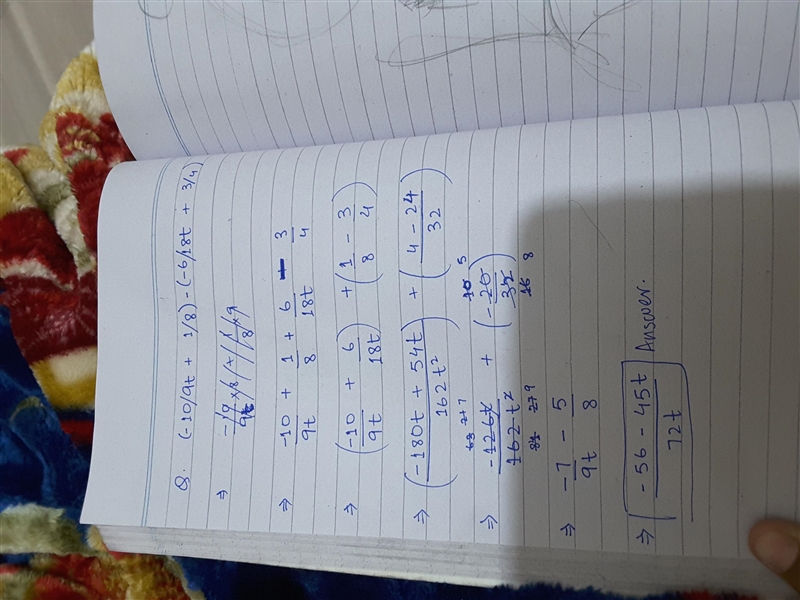 Q. (-10/9t + 1/8) - (-6/18t + 3/4)
⇒
⇒ -10/9t + 1/8 + 6/18t - 3/4
⇒ (-10/9t + 6/18t) + (1/8 - 3/4)
⇒ (-180t + 54t/162t²) + (4 - 24/32)
⇒ -126t/162t² + (-20/32)
⇒ -7/9t - 5/8
⇒ -56 - 45t/72t Answer.